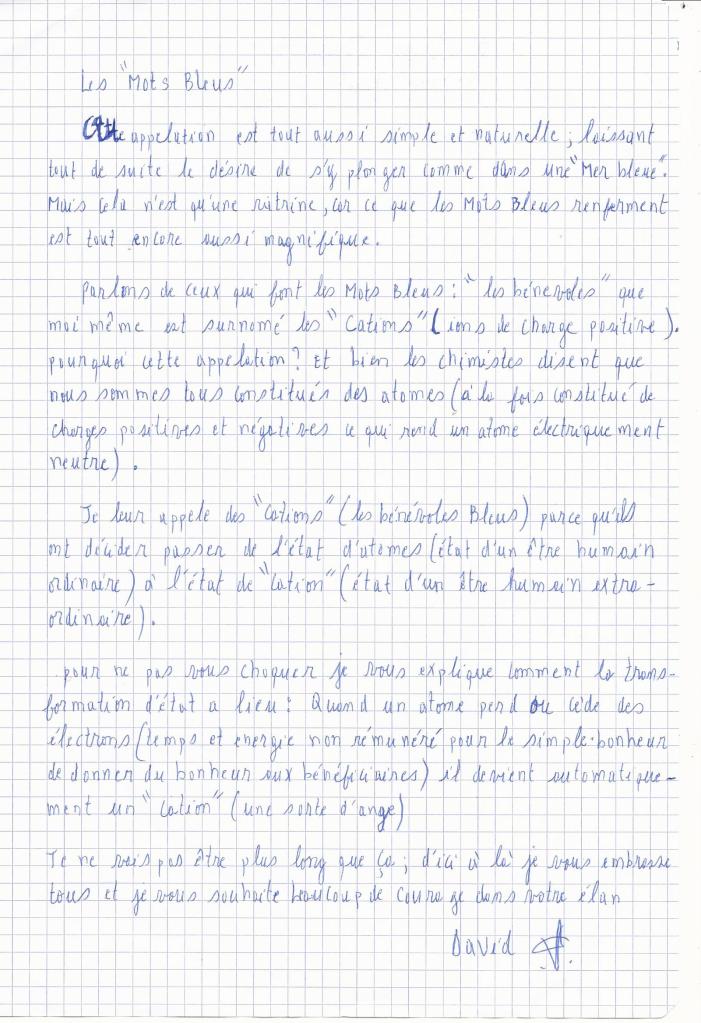 Les "Mots Bleus"
Cette appelation est tout aussi simple et naturelle ; laissant
tout de suite le désire de s'y plonger comme dans une "Mer bleue".
Mais cela n'est qu'une vitrine, car ce que les Mots Bleus renferment
est tout encore aussi magnifique.
Parlons de ceux qui font les Mots Bleus : "les bénevoles" que
moi même est surnomé les "Cations" (ions de charge positive).
pourquoi cette appelation ? Et bien les chimistes disent que
nous sommes tous constitués des atomes (à la fois constitué de
charges positives et négatives ce qui rend un atome électriquement
neutre).
Je leur appele des "Cations" (les bénévoles Bleus) parce qu'ils
ont décider passer de l'état d'atomes (état d'un être humain
ordinaire) à l'état de "Cation" (état d'un être humain extra-
ordinaire).
pour ne pas vous choquer je vous explique comment la trans-
formation d'état a lieu : Quand un atome perd ou cède des
électrons (temps et energie non rémunéré pour le simple bonheur
de donner du bonheur aux bénéficiaires) il devient automatique-
ment un "Cation" (une sorte d'ange)
Je ne vais pas être plus long que ça ; d'ici à là je vous embrasse
tous et je vous souhaite beaucoup de courage dans votre élan
David